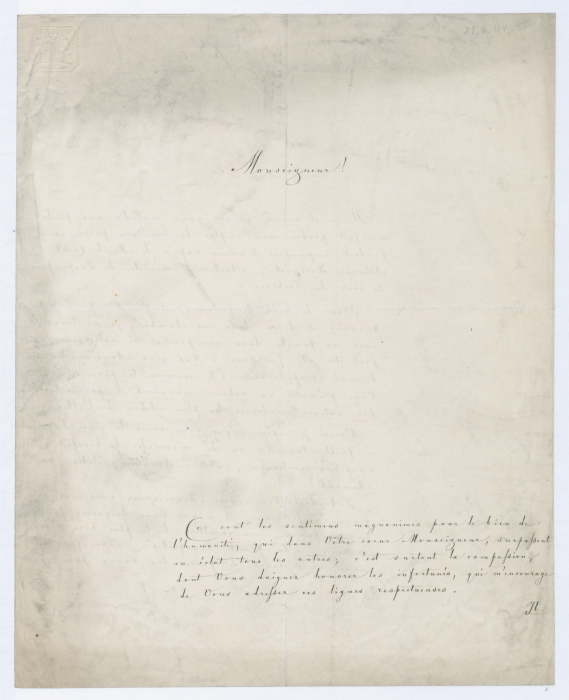 Monseigneur!
Ce sont les sentimens magnanimes pour le bien de
l'humanité, qui dans Votre coeur Monseigneur, surpassent
en éclat tous les autres; c'est surtout la compassion,
dont Vous daignez honorer les infortunés, qui m'encourage
de Vous adresser ces lignes respectueuses.
Il